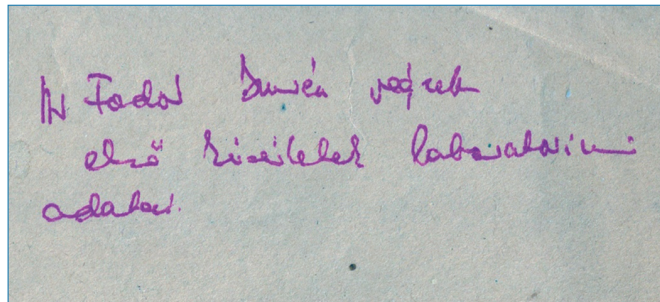 Az Fodor Imrén végzett
első kisérletek laboratoriumi
adatai.